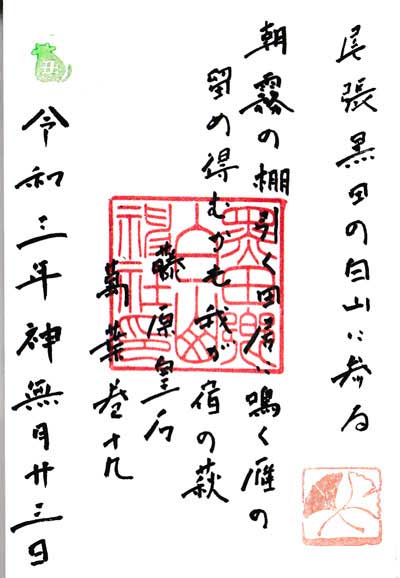 尾張黒田の白山に参る
朝霧の棚引く田居に鳴く雁の
留め得むかも我が宿の萩
藤原皇后
萬葉巻十九
令和三年神無月廿三日
白山
神社印